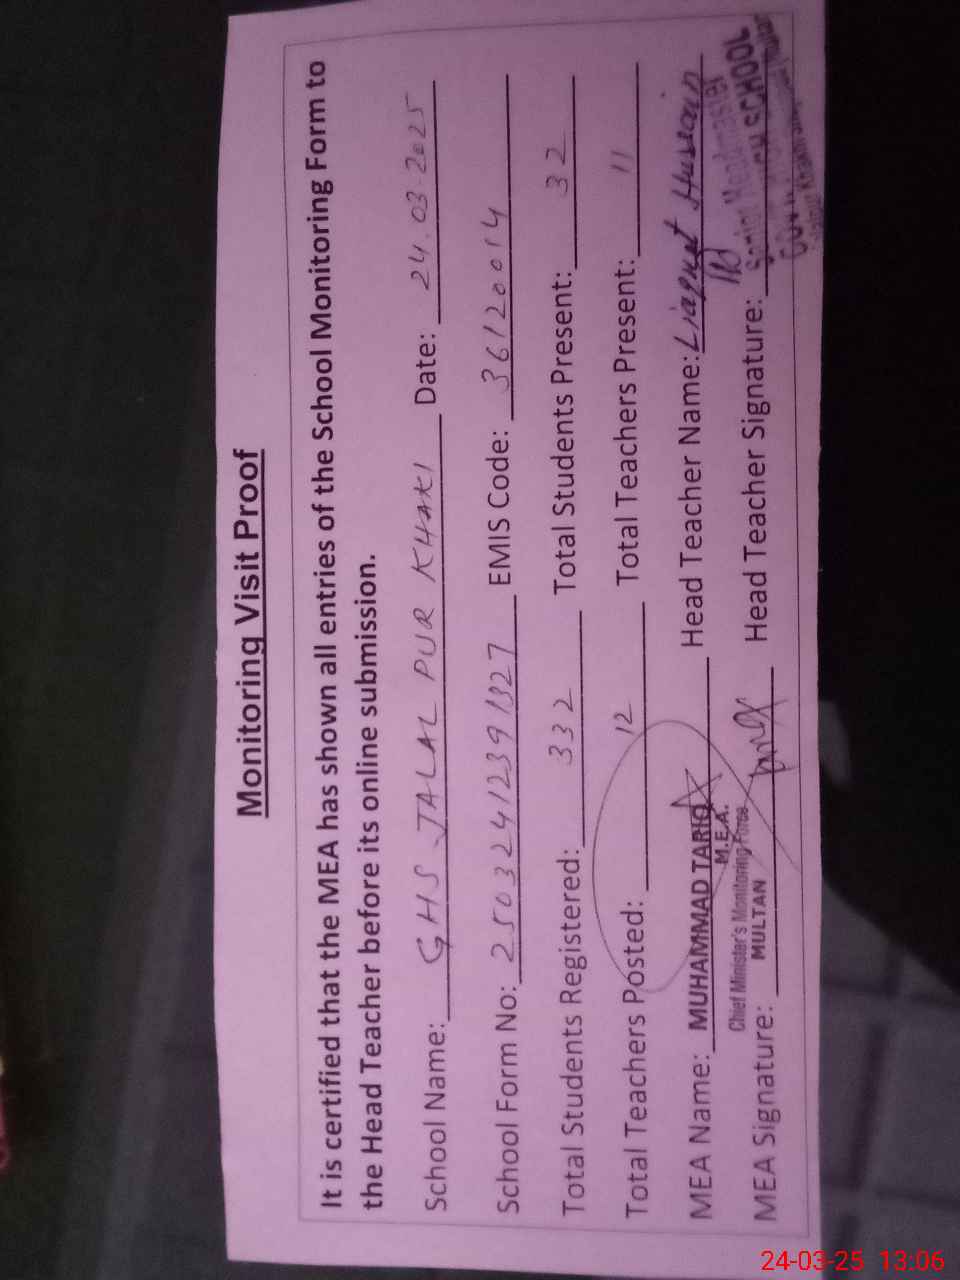 Monitoring Visit Proof
It is certified that the MEA has shown all entries of the School Monitoring Form to
the Head Teacher before its online submission.
School Name: GHS JALAL PUR KHAKI Date: 24.03.2025
School Form No: 25032412391327 EMIS Code: 36120014
Total Students Registered: 332 Total Students Present: 32
Total Teachers Posted: 12 Total Teachers Present: 11
MEA Name: MUHAMMAD TARIQ Head Teacher Name: Liaquat Hussain
M.E.A.
Chief Minister's Monitoring Force
MULTAN
Senior Headmaster
SCHOOL
MEA Signature: Head Teacher Signature:
24-03-25 13:06